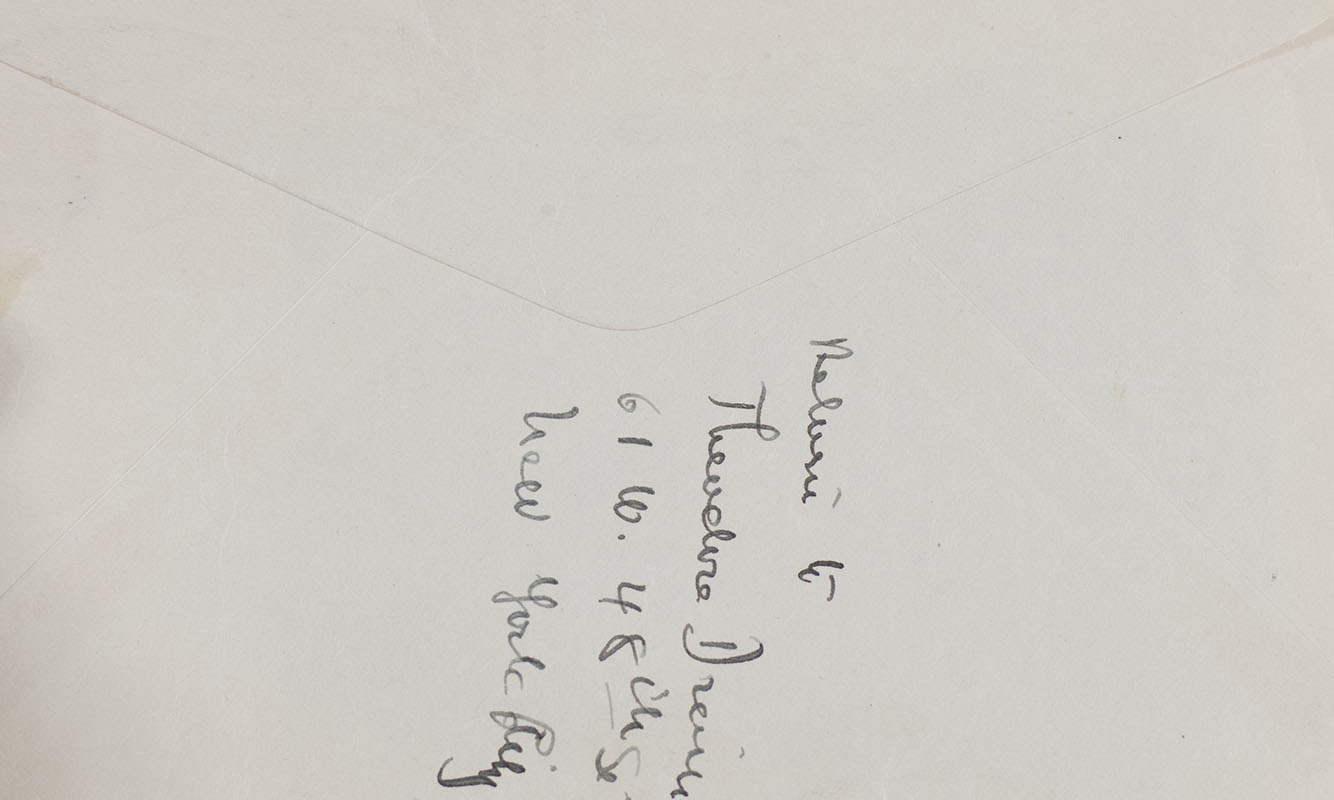 Return to
Theodore Dreis
61 W. 48th St
New York City